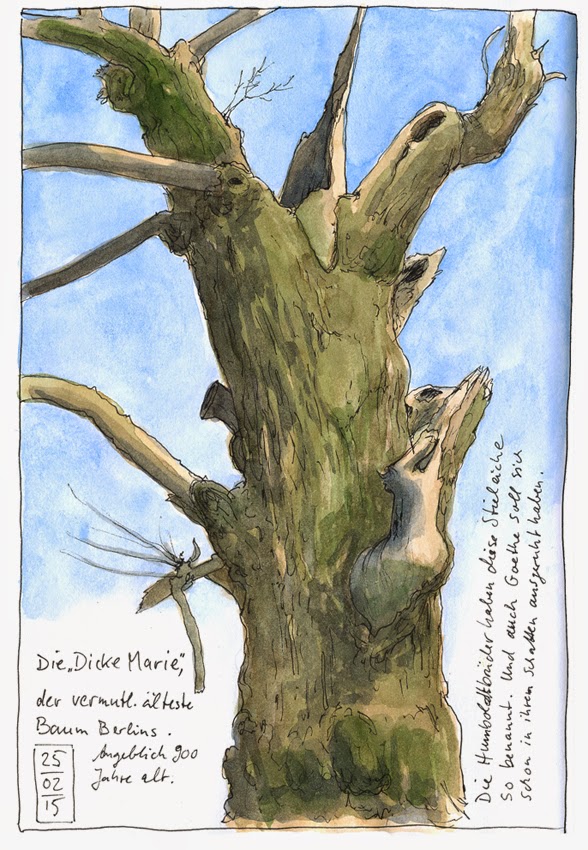 Die „Dicke Marie“,
der vermutl. älteste
Baum Berlins.
Angeblich 900
Jahre alt.
25
02
15
Die Humboldtbrüder haben diese Stieleiche
so benannt. Und auch Goethe soll sich
schon in ihrem Schatten ausgeruht haben.